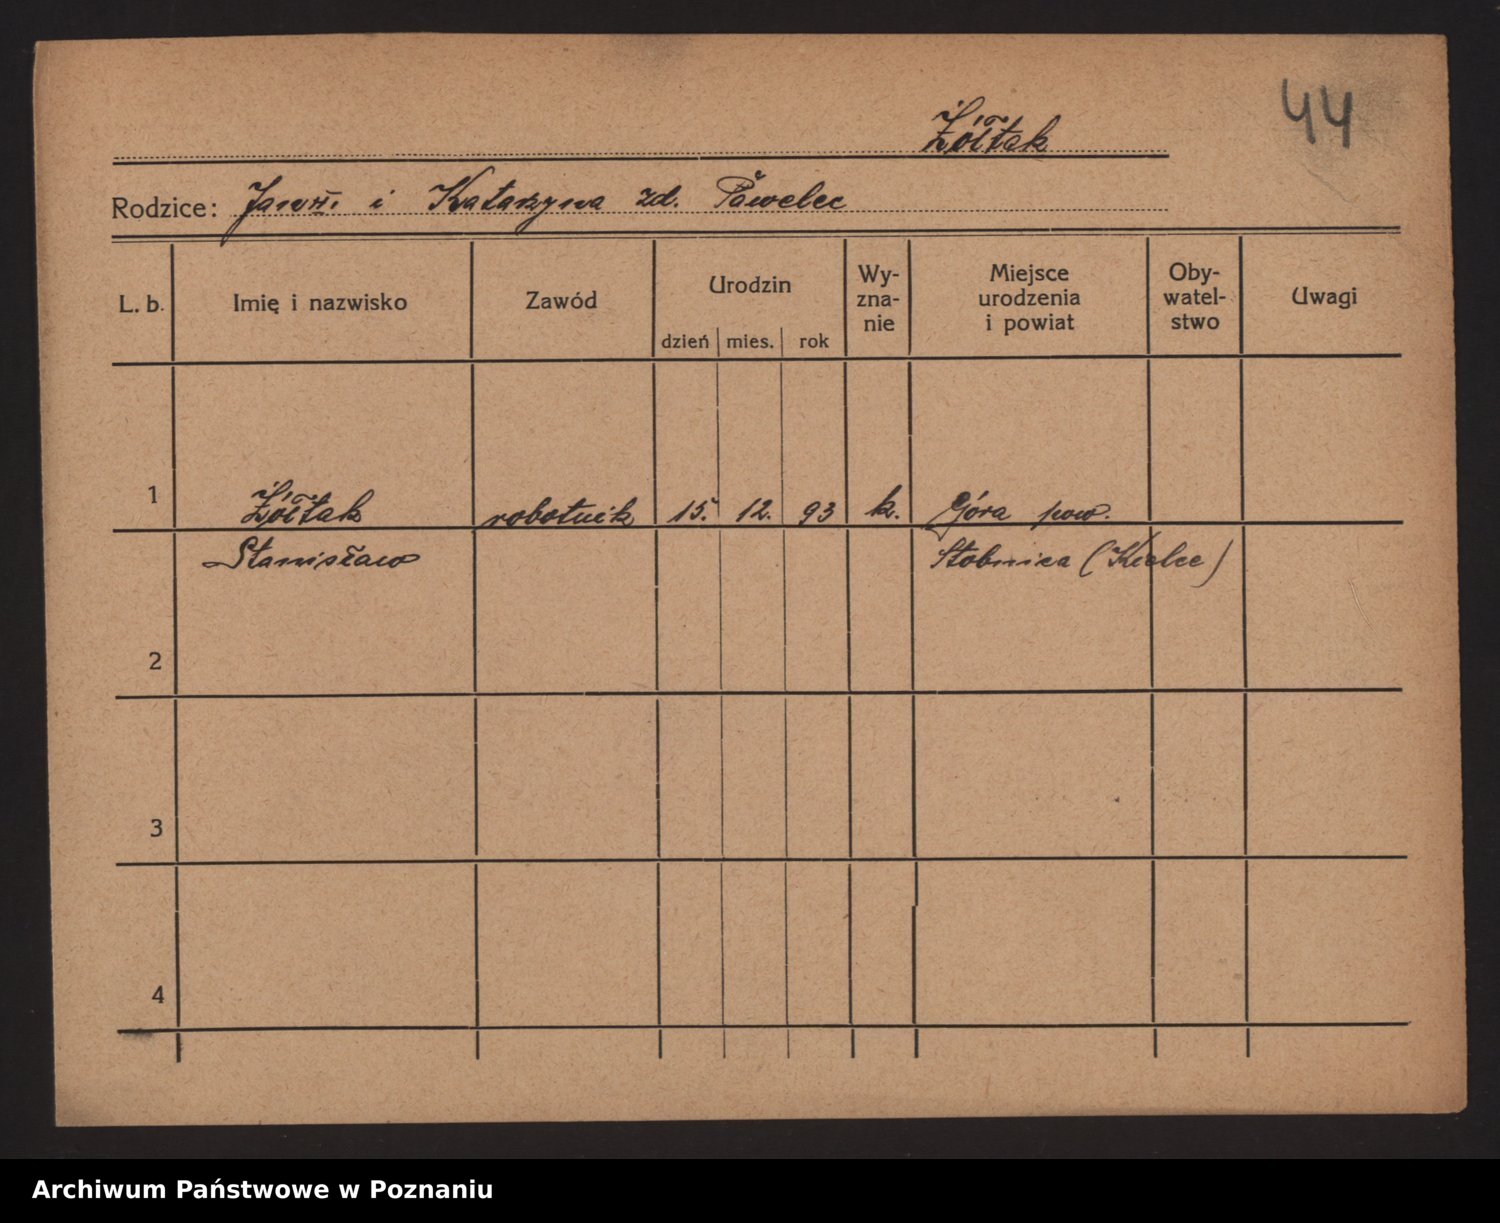 44
Żółtak
Rodzice: Jan i Katarzyna zd. Pawelec
L. b. Imię i nazwisko Zawód Urodzin dzień mies. rok Wy-zna-nie Miejsce urodzenia i powiat Oby-watel-stwo Uwagi
1 Żółtak robotnik 15. 12. 93 k. Góra pow.
Stanisław Stobnica (Kielce)
2
3
4
Archiwum Państwowe w Poznaniu